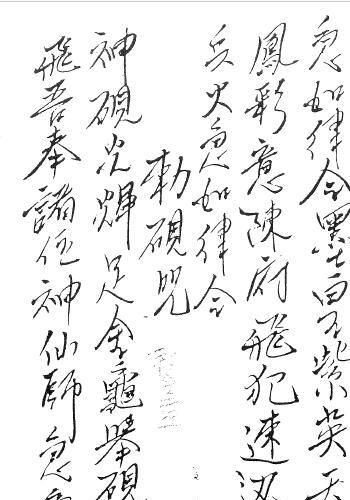 急如律令黑七白不紫英天
鳳彩意陳府飛犯速迅
兵火急如律令
勅硯咒
神硯光輝足金龜舉硯
飛吾奉諸位神仙師急